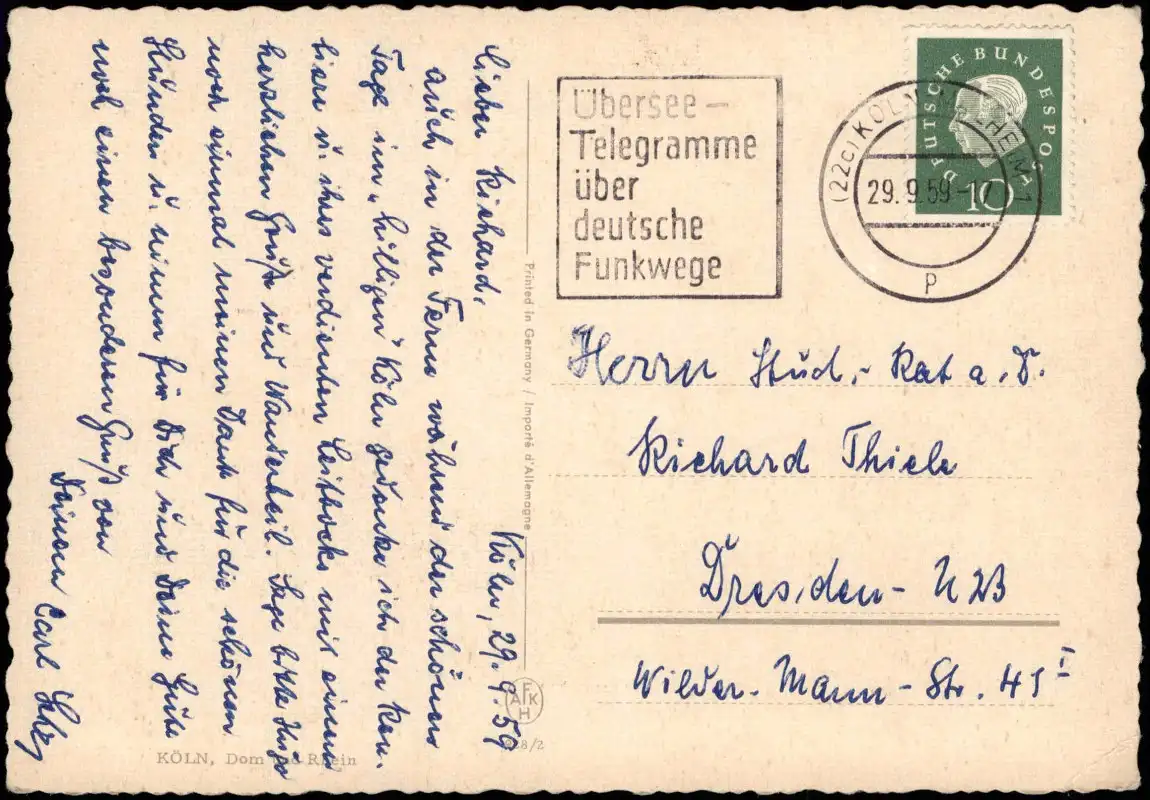 Köln, 29.9.59
Lieber Richard,
auch in der Ferne während der schönen
Tage im „hilligen Köln gedenke ich der Ren-
tiere u. ihres verdienten Leitbocks mit einem
herzlichen Gruß und Wanderheil. Sage bitte
noch einmal meinen Dank für die schönen
Stunden u. nimm für Dich und Deine Güte
noch einen besonderen Gruß von
Deinem Carl
Übersee-
Telegramme
über
deutsche
Funkwege
DEUTSCHE BUNDESPOST
10
(22c) KÖLN-MÜLHEIM 1
29.9.59-17
p
Herrn Stud.-Rat a.D.
Richard Thiele
Dresden-N23
Wilder-Mann-Str. 45 I
Printed in Germany / Importé d'Allemagne
AFKH
KÖLN, Dom und Rhein